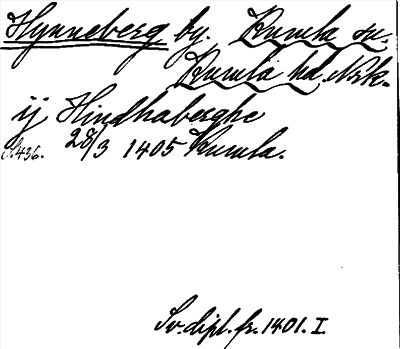 Hynneberg by. Kumla sn.
Kumla hd. Nrk.
ij Hindhaberghe
S. 436. 28/3 1405 Kumla.
Sv. dipl. fr. 1401. I.